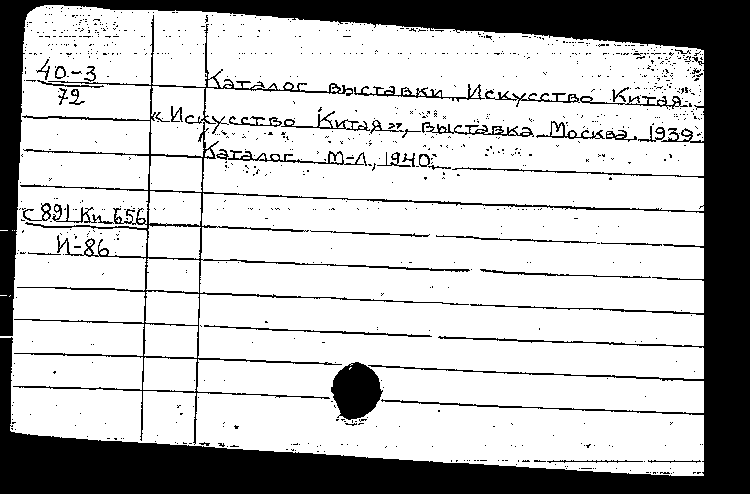 40-3
72
Каталог выставки „Искусство Китая.
«Искусство Китая», выставка Москва. 1939.
Каталог. М-Л., 1940.
с 891 Ки 656
И-86